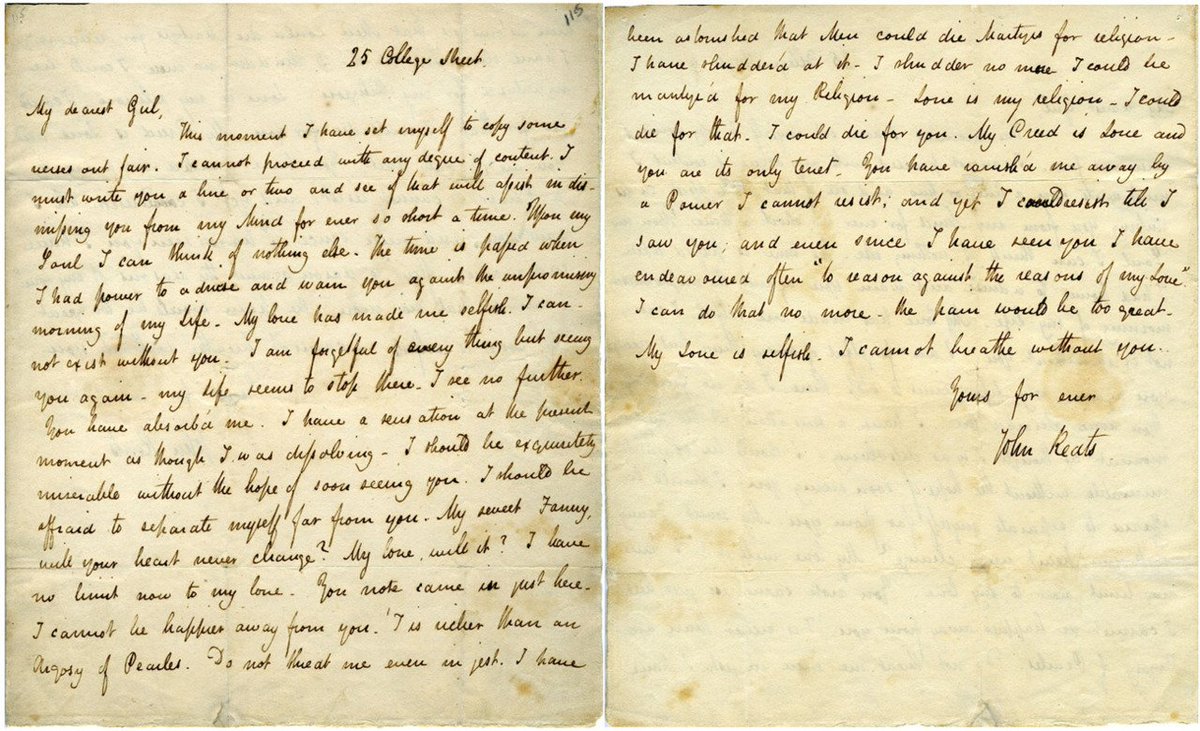 115
25 College Street
My dearest Girl,
This moment I have set myself to copy some
verses out fair. I cannot proceed with any degree of content. I
must write you a line or two and see if that will assist in dis-
missing you from my Mind for ever so short a time. Upon my
Soul I can think of nothing else. The time is passed when
I had power to advise and warn you against the unpromising
morning of my Life. My love has made me selfish. I can-
not exist without you. I am forgetful of every thing but seeing
you again - my life seems to stop there. I see no further.
You have absorb'd me. I have a sensation at the present
moment as though I was dissolving - I should be exquisitely
miserable without the hope of soon seeing you. I should be
affraid to separate myself far from you. My sweet Fanny,
will your heart never change? My love, will it? I have
no limit now to my love - You note came in just here.
I cannot be happier away from you. 'T is richer than an
Argosy of Pearles. Do not threat me even in jest. I have
been astonished that Men could die Martyrs for religion -
I have shudder'd at it - I shudder no more I could be
martyr'd for my Religion - Love is my religion - I could
die for that. I could die for you. My Creed is Love and
you are its only tenet. You have ravish'd me away by
a Power I cannot resist; and yet I could resist till I
saw you; and even since I have seen you I have
endeavoured often "to reason against the reasons of my Love."
I can do that no more - the pain would be too great -
My Love is selfish. I cannot breathe without you.
Yours for ever
John Keats